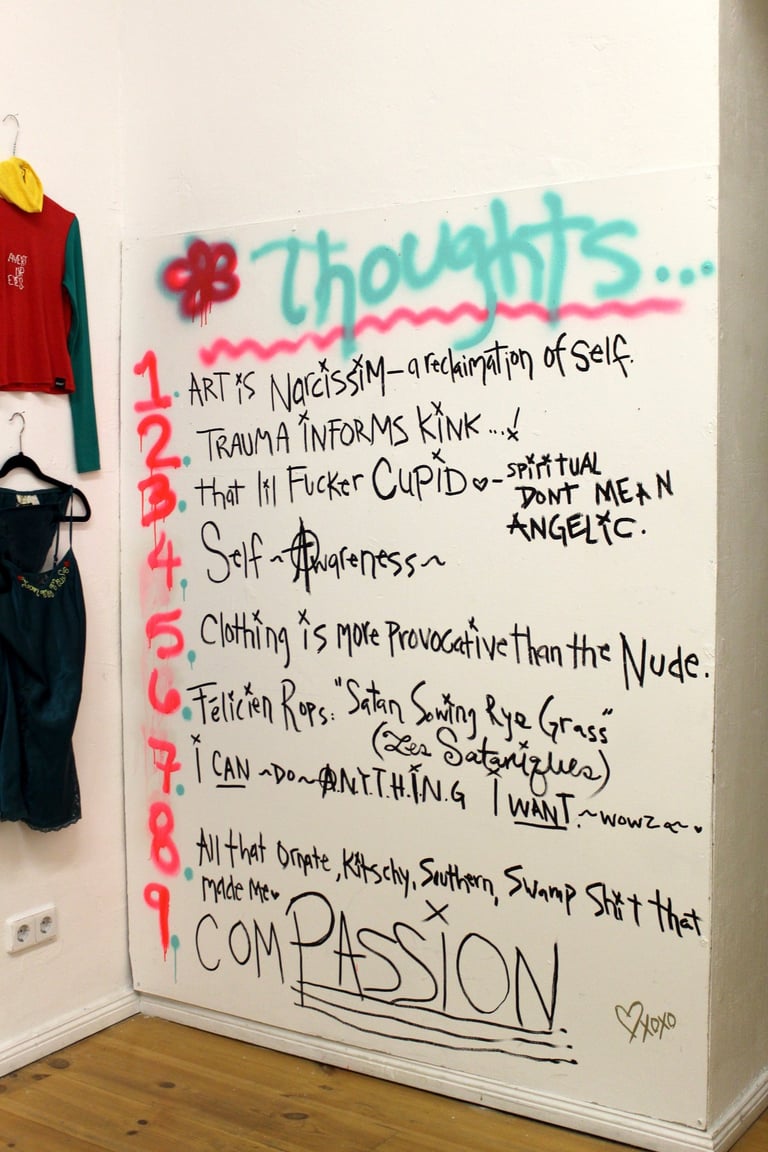 Thoughts...
1. ART is Narcissim - a reclaimation of Self.
2. TRAUMA INFORMS KINK...!
3. that lil Fucker CUPID ♡ - SPIRITUAL
DONT MEAN
ANGELIC.
4. Self ~ Awareness ~
5. Clothing is more Provocative than the Nude.
6. Félicien Rops: "Satan Sowing Rye Grass"
(Les Sataniques)
7. I CAN ~DO~ A.N.Y.T.H.I.N.G I WANT. ~wowza~
8. All that Ornate, Kitschy, Southern, Swamp Shit that
made me ♥
9. COMPASSION.
♡xoxo
AVERT
UR
EYES